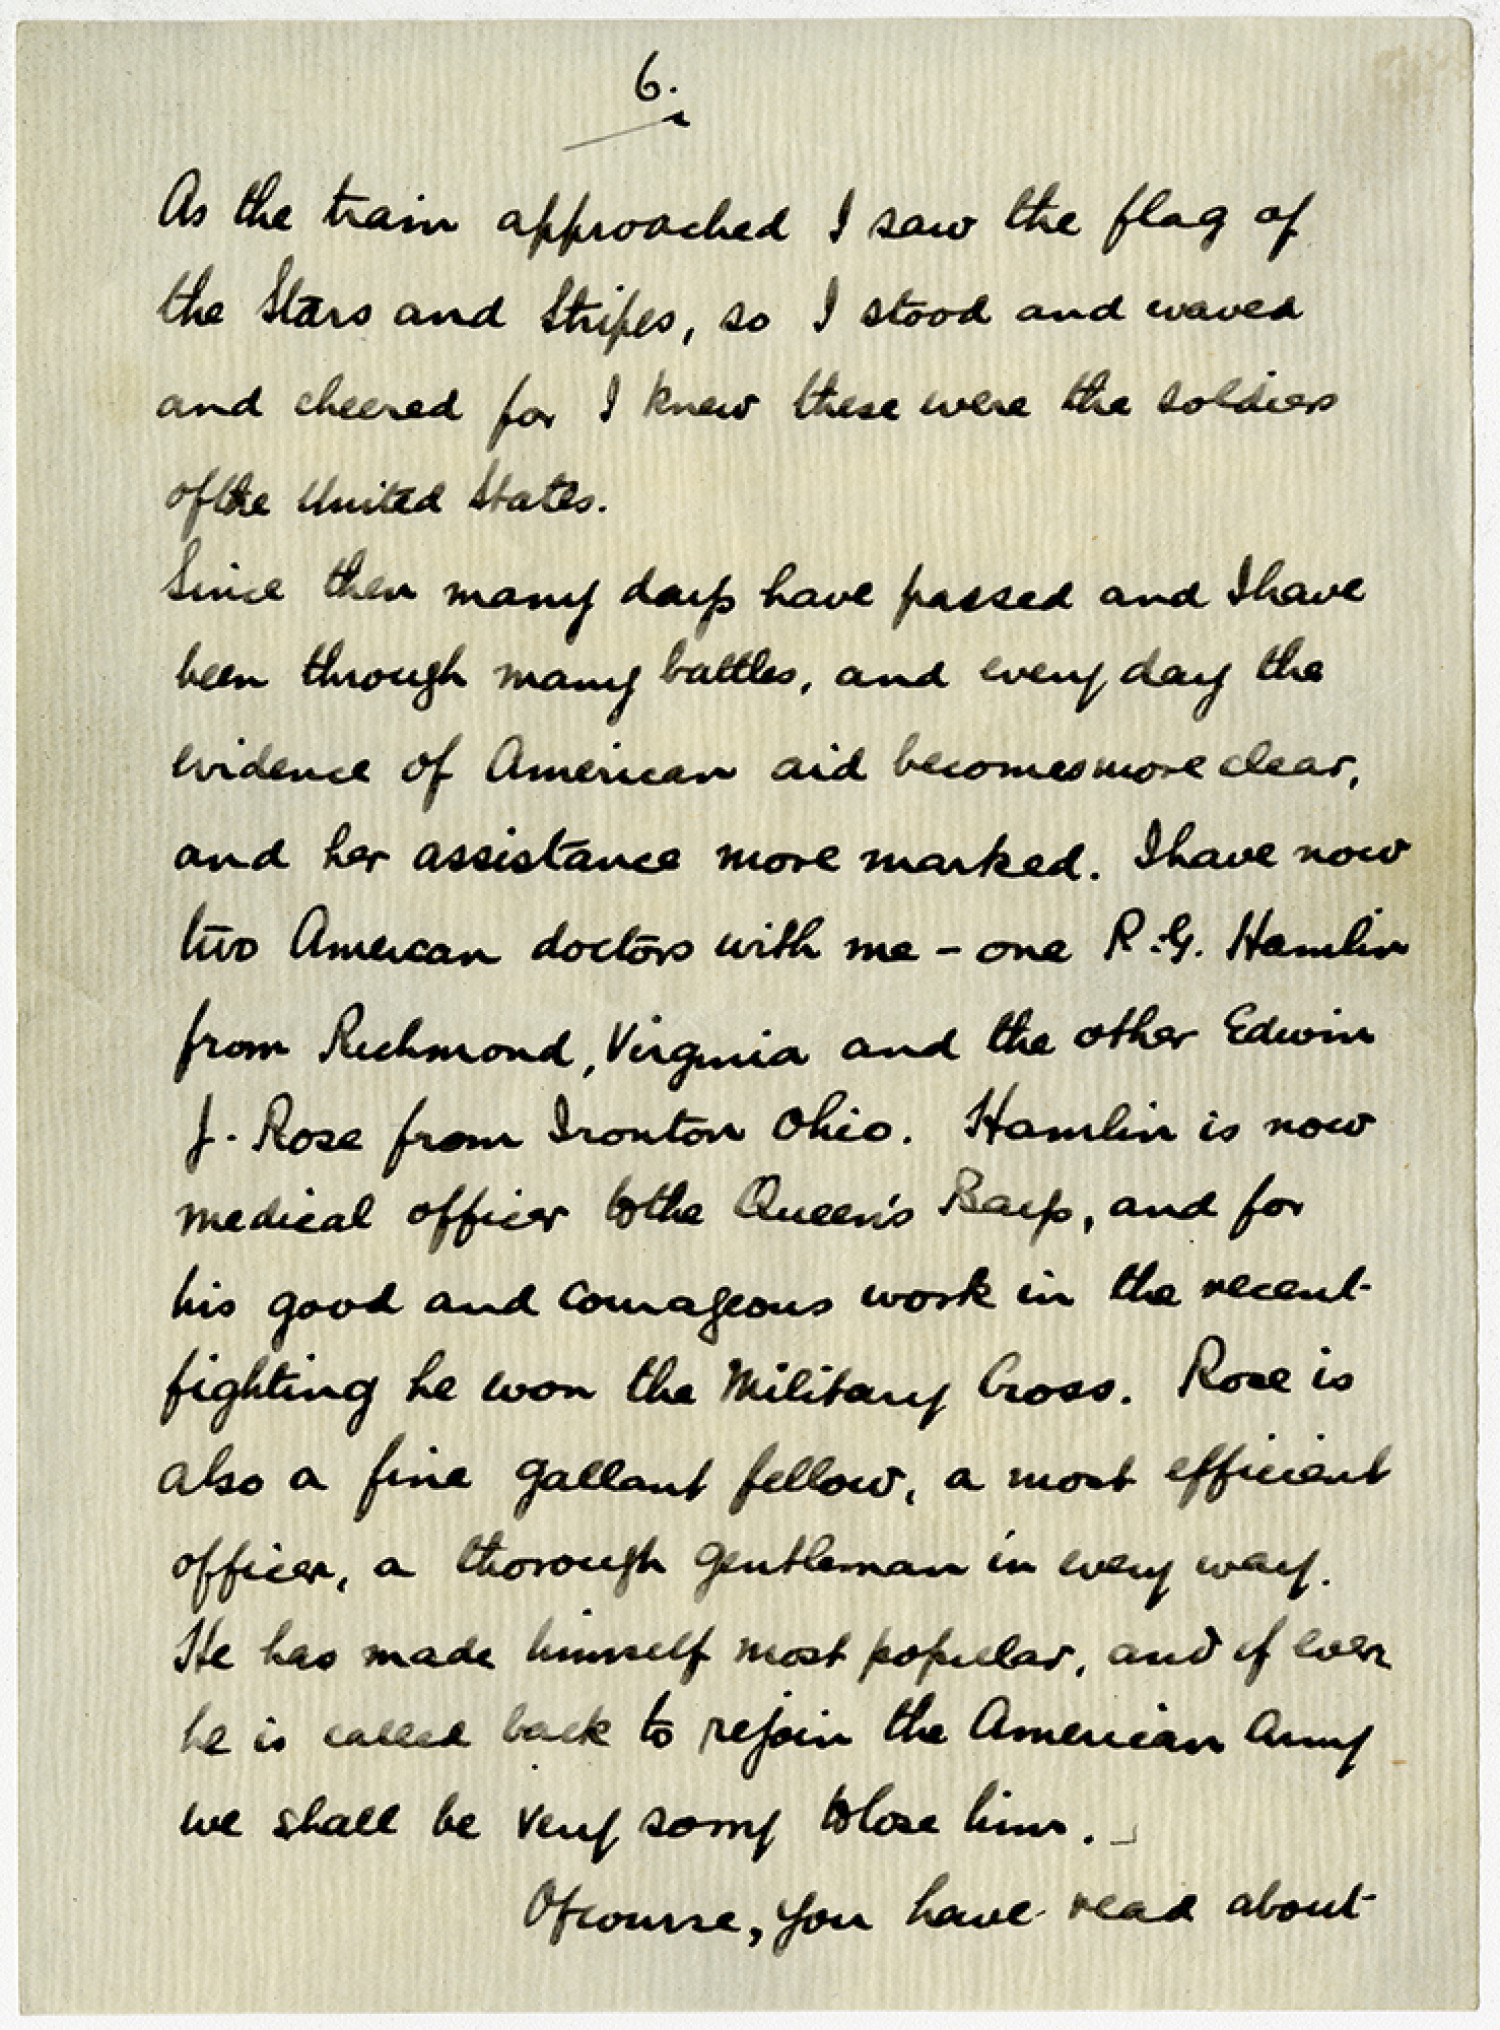 6.
As the train approached I saw the flag of
the Stars and Stripes, so I stood and waved
and cheered for I knew these were the soldiers
of the United States.
Since then many days have passed and I have
been through many battles, and every day the
evidence of American aid becomes more clear,
and her assistance more marked. I have now
two American doctors with me - one R.G. Hamlin
from Richmond, Virginia and the other Edwin
J. Rose from Ironton Ohio. Hamlin is now
medical officer to the Queen's Bays, and for
his good and courageous work in the recent
fighting he won the Military Cross. Rose is
also a fine gallant fellow, a most efficient
officer, a thorough gentleman in every way.
He has made himself most popular, and if ever
he is called back to rejoin the American Army
we shall be very sorry to lose him.
Of course, you have read about